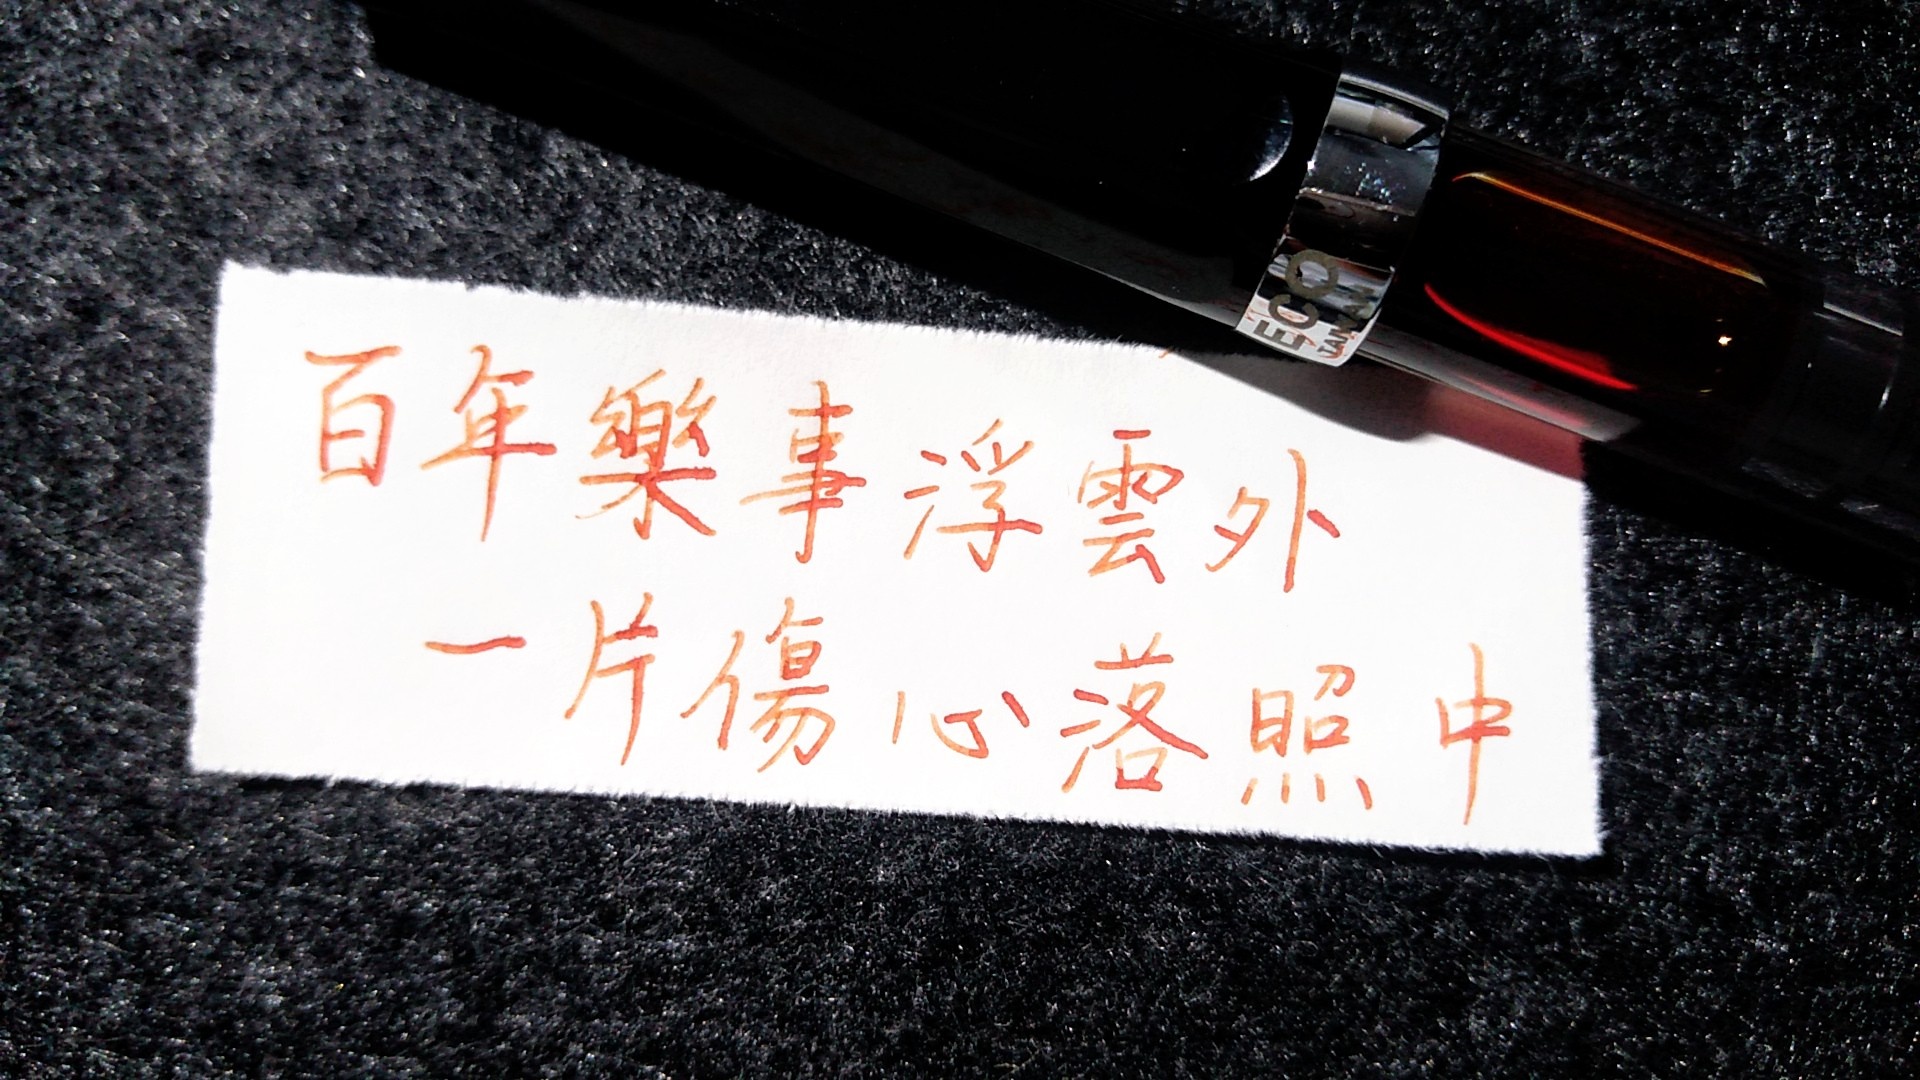 百年樂事浮雲外
一片傷心落照中
ECO